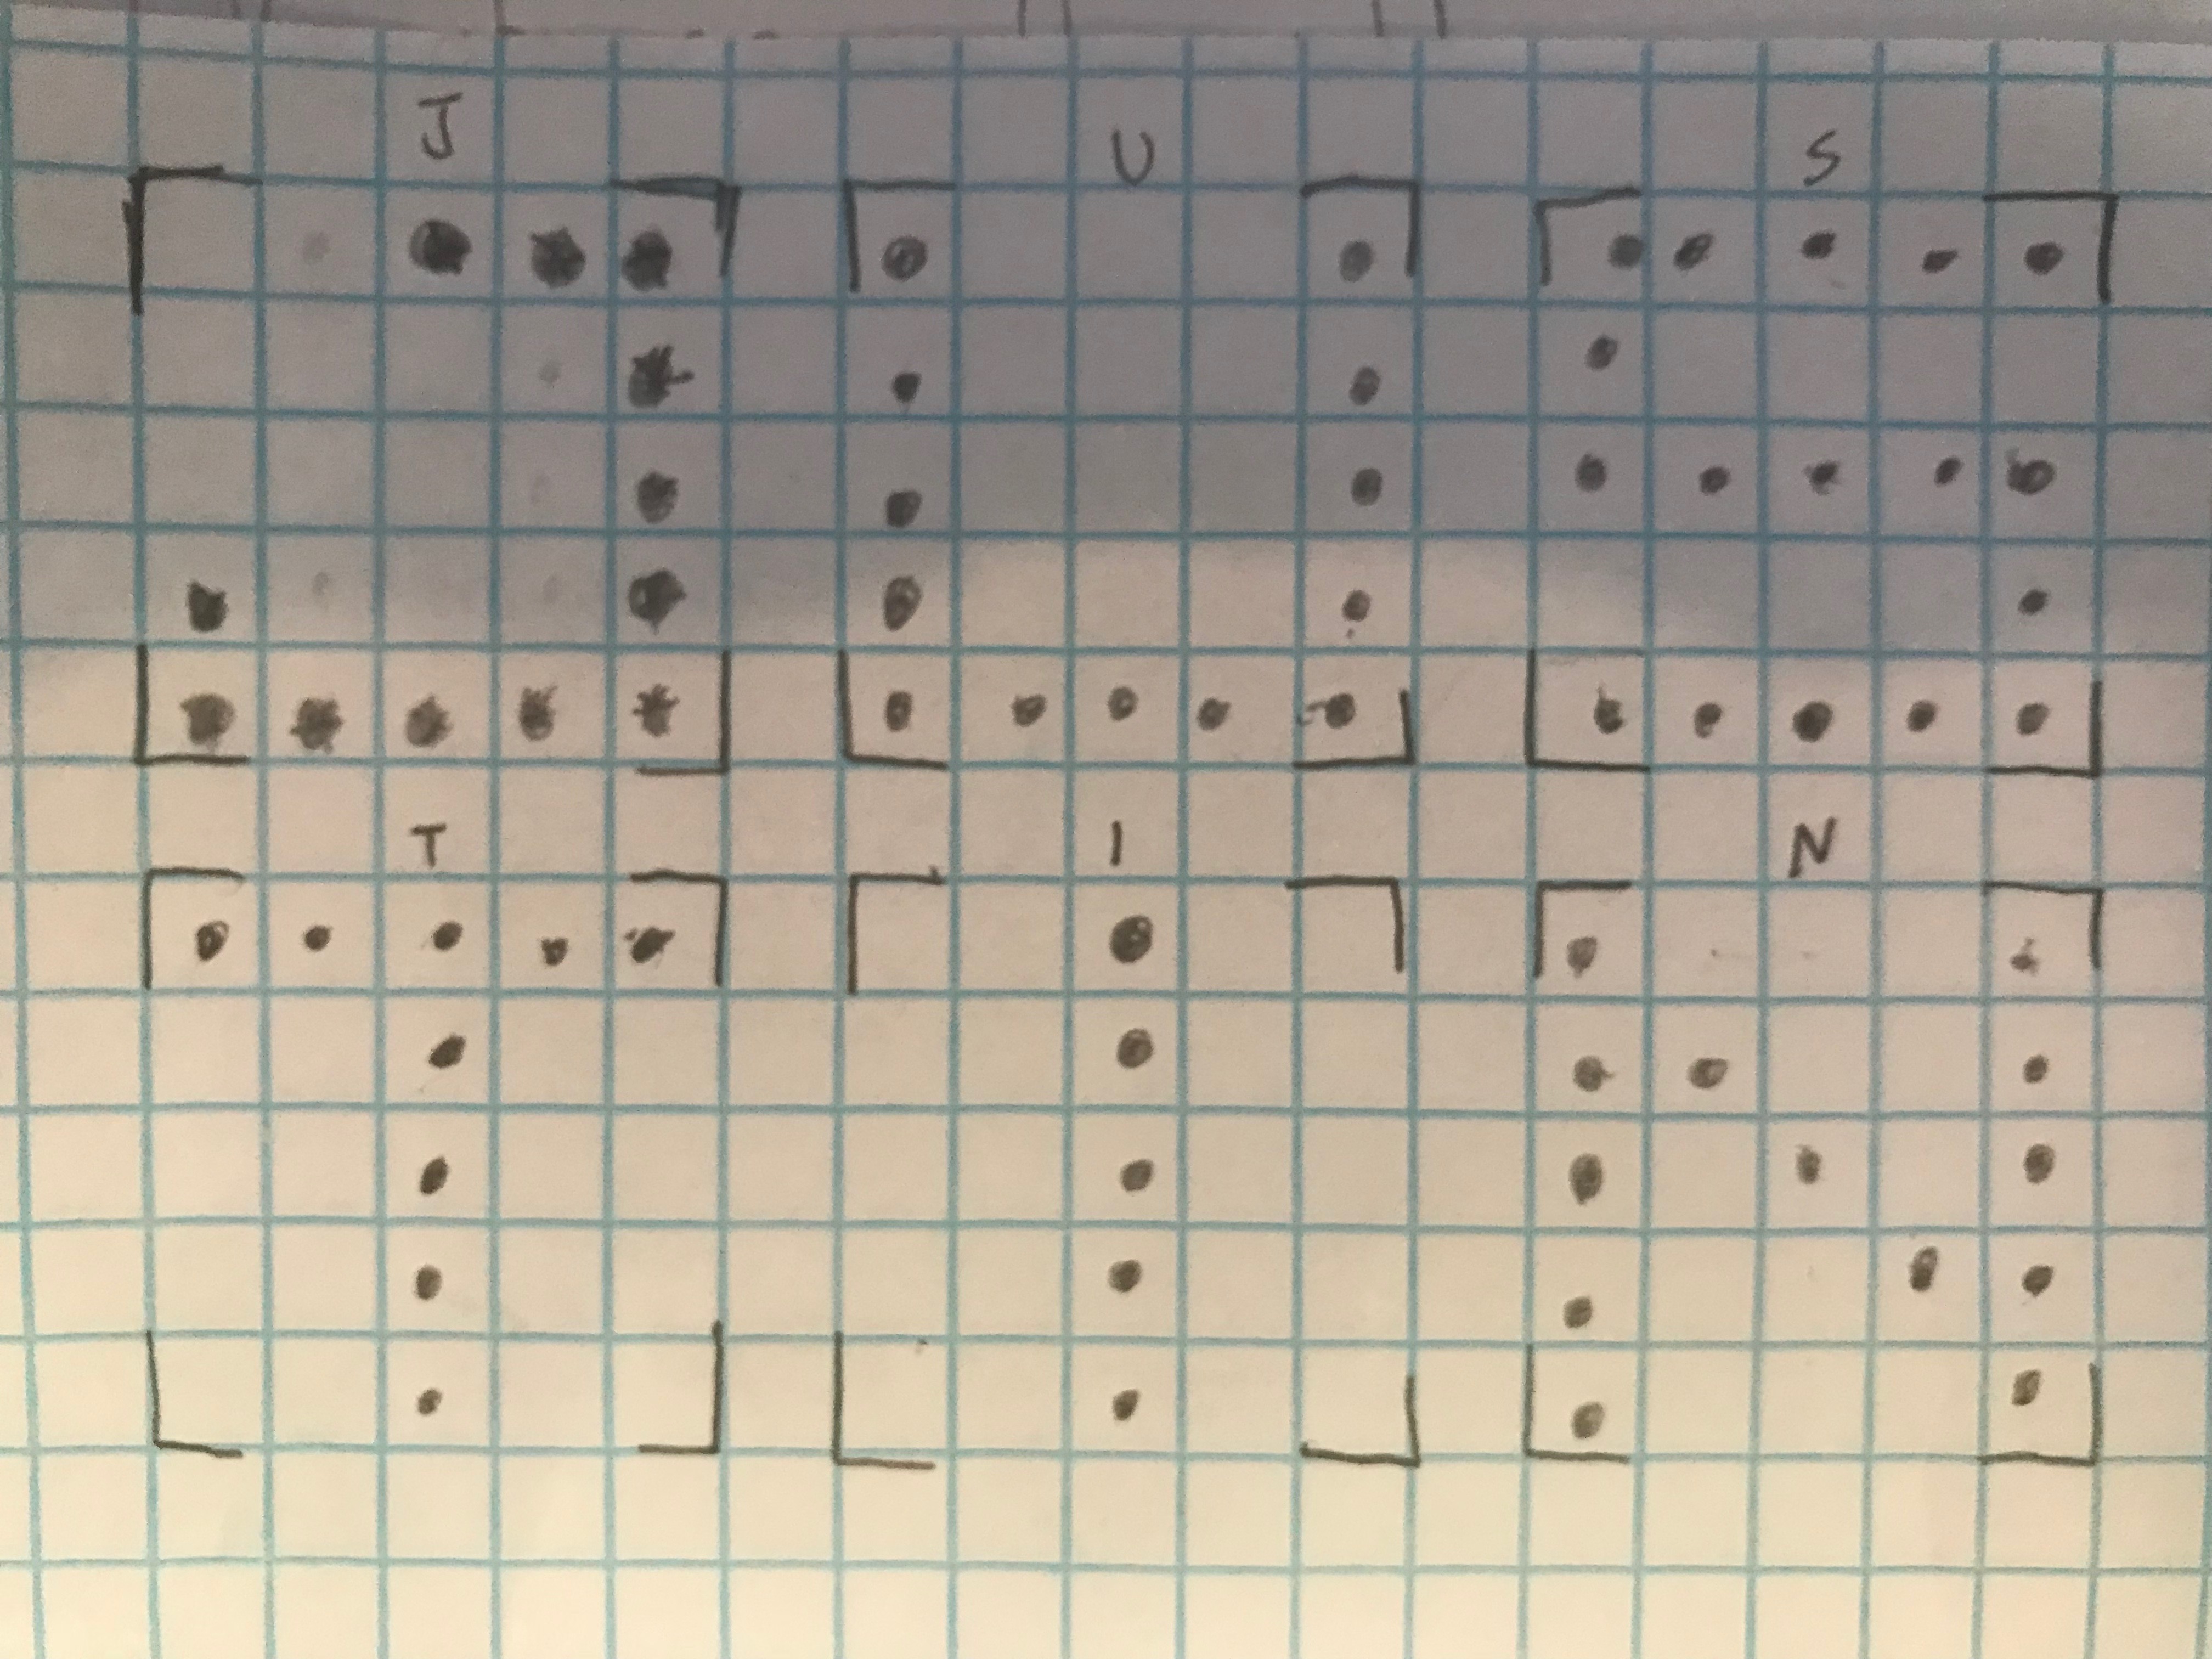 J U S
T I N